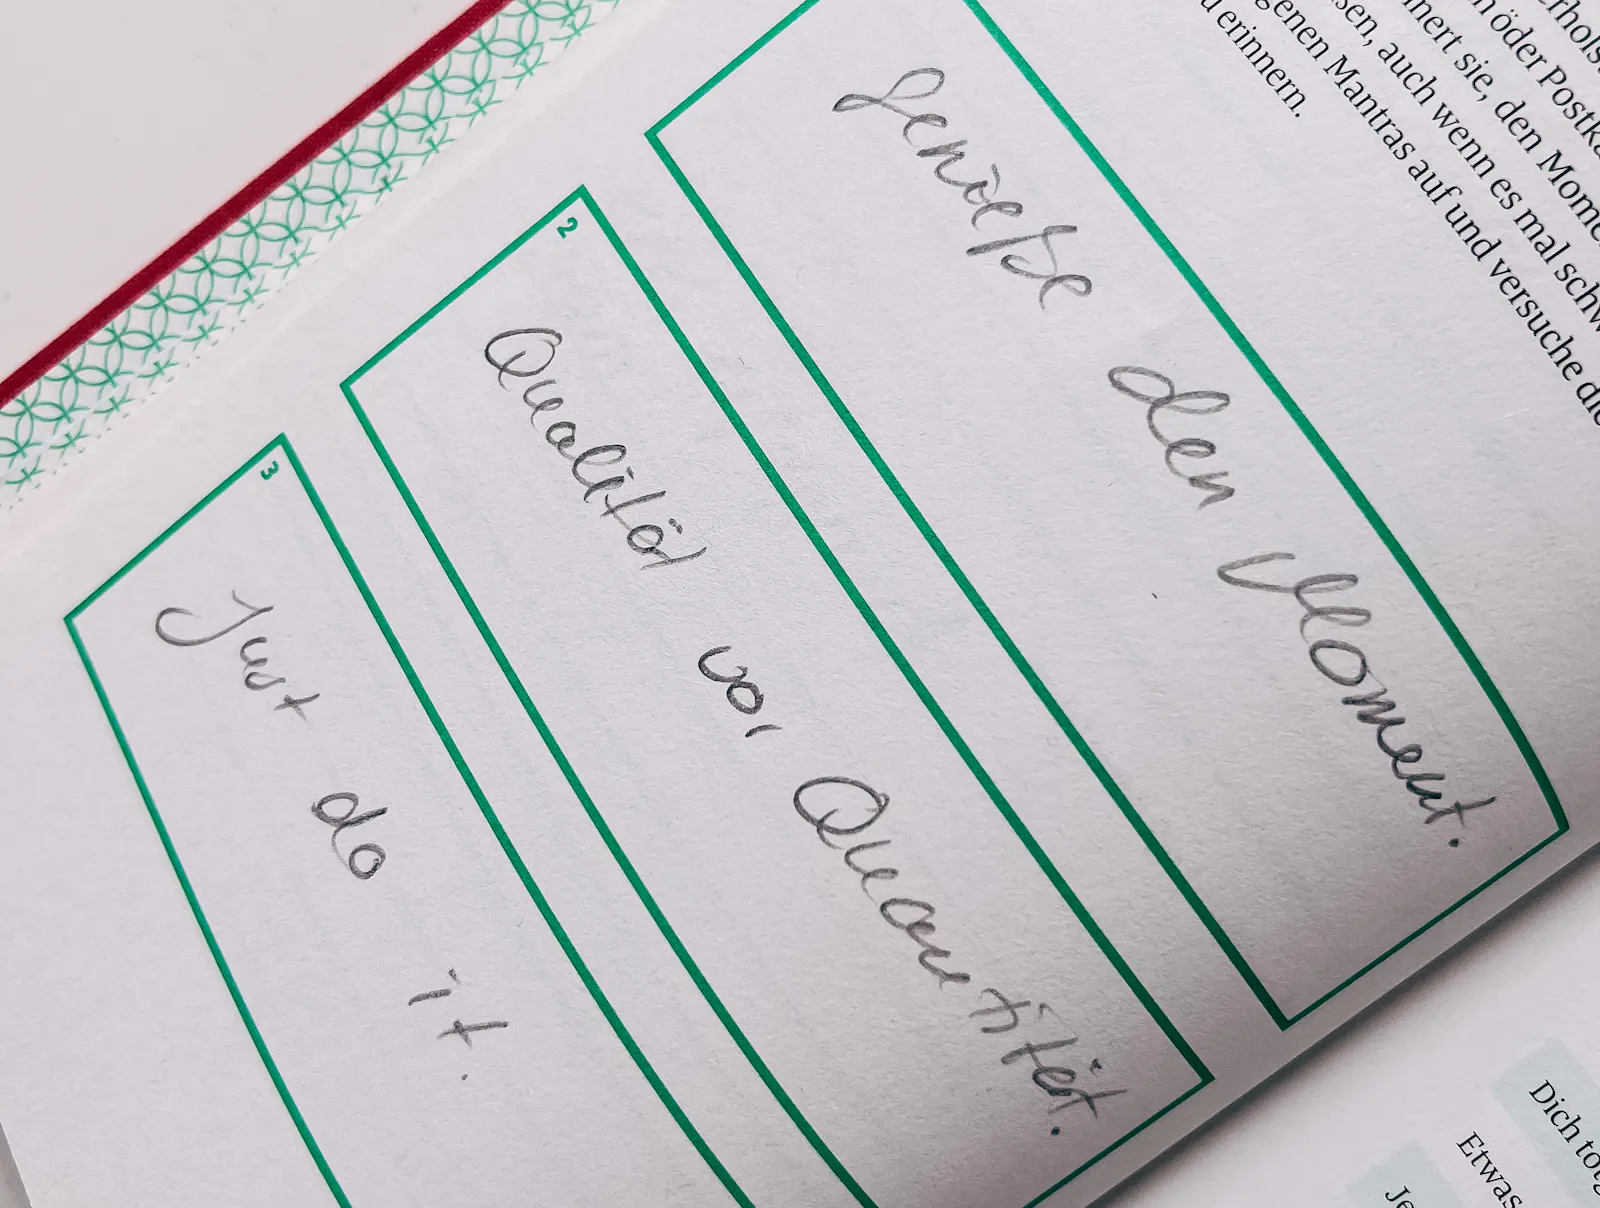 öder Postka
nert sie, den Mome
sen, auch wenn es mal schw
genen Mantras auf und versuche die
erinnern.
Genieße den Moment.
2
Qualität vor Quantität.
3
Just do it.
Dich
Etwas
Je